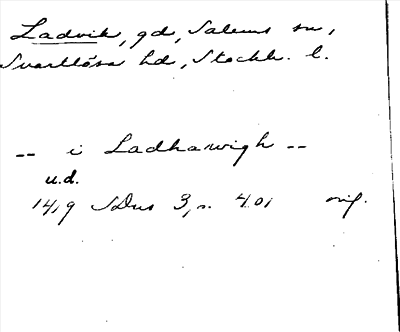 Ladvik, gd, Salems sn,
Svartlösa hd, Stockh. l.
-- i Ladhawigh --
u.d.
1419 SDns 3, s. 401 orig.